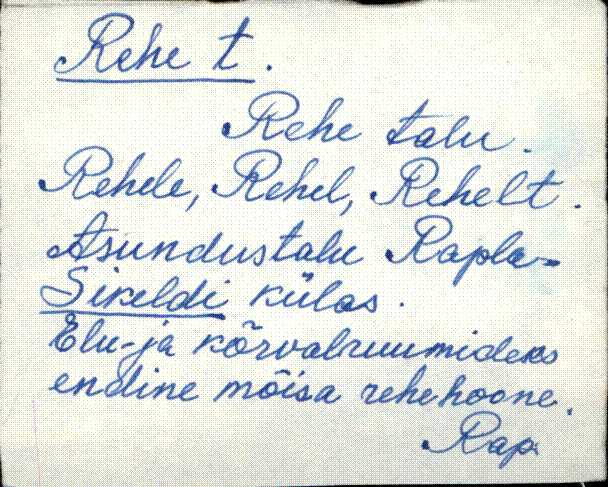 Rehe t.
Rehe talu.
Rehele, Rehel, Rehelt.
Asundustalu Rapla-
Sikeldi külas.
Elu-ja kõrvalruumideks
endine mõisa rehehoone.
Rap.